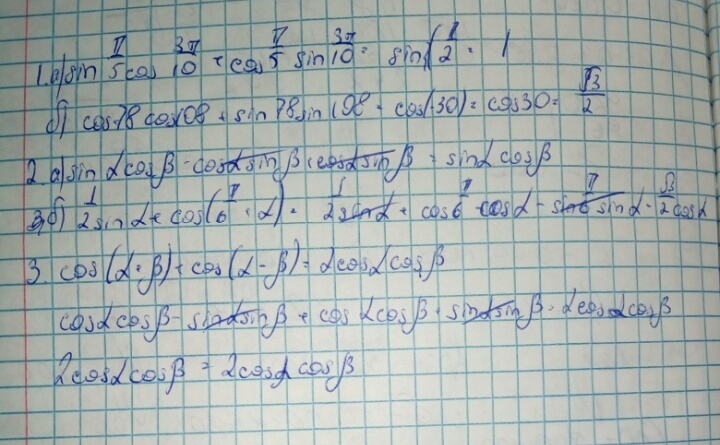 1.а) sin π/5 cos 3π/10 + cos π/5 sin 3π/10 = sin(π/2 = 1
б) cos78 cos108 + sin 78 sin 108 = cos(-30) = cos30 = √3/2
2.а) sin α cos β - cosα sin β + cosα sin β = sinα cos β
б) 1/2 sin α + cos(π/6 + α) = 1/2 sin α + cos π/6 cos α - sin π/6 sin α = √3/2 cos α
3. cos(α+β) + cos(α-β) = 2cosα cos β
cosα cos β - sinα sin β + cos α cos β + sinα sin β = 2cosα cos β
2cosα cos β = 2cosα cos β